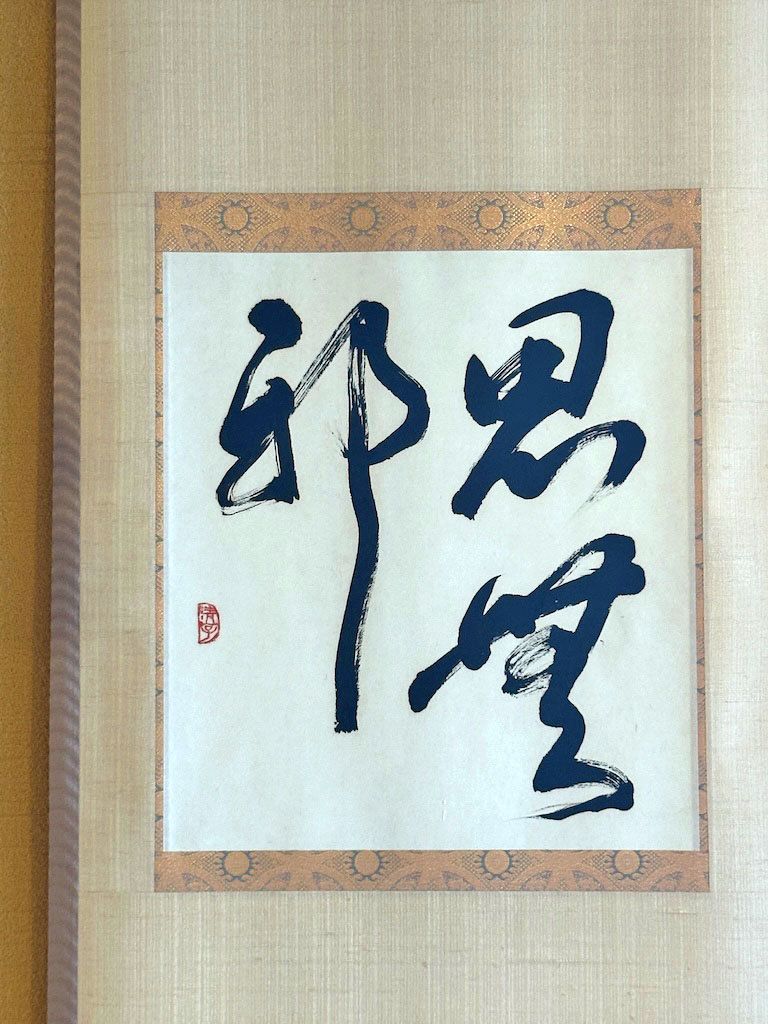 思無
邪